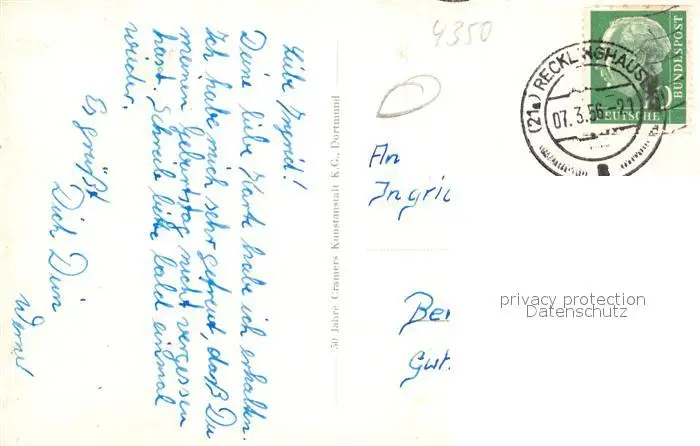 Liebe Ingrid!
Deine liebe Karte habe ich erhalten.
Ich habe mich sehr gefreut, daß Du
meinen Geburtstag nicht vergessen
hast. Schreibe bitte bald einmal
wieder.
Es grüßt
Dich Dein
Werner
50 Jahre Cramers Kunstanstalt K.G., Dortmund
4350
(21a) RECKLINGHAUS
07.3.56.-21
a
DEUTSCHE
BUNDESPOST
An
Ingri
Ber
privacy protection
Datenschutz